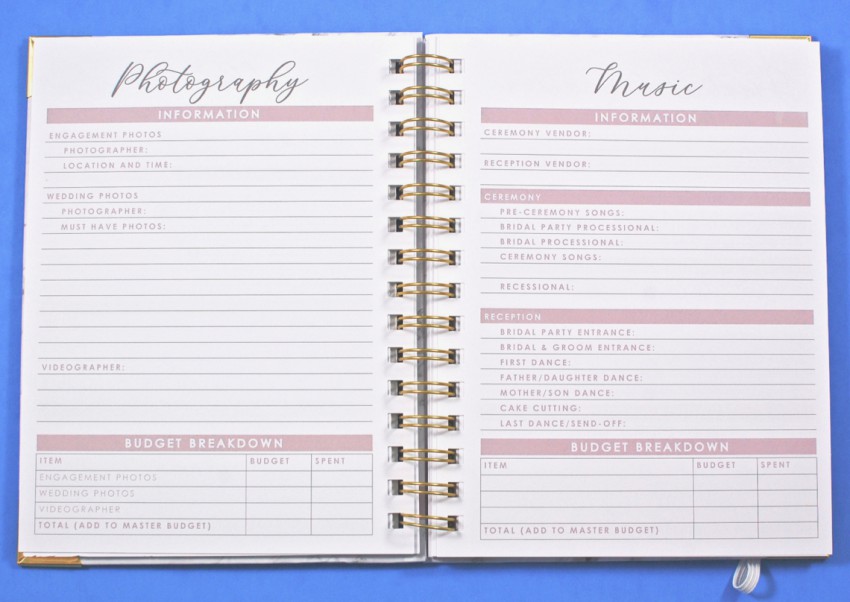 Photography
INFORMATION
ENGAGEMENT PHOTOS
PHOTOGRAPHER:
LOCATION AND TIME:
WEDDING PHOTOS
PHOTOGRAPHER:
MUST HAVE PHOTOS:
VIDEOGRAPHER:
BUDGET BREAKDOWN
ITEM BUDGET SPENT
ENGAGEMENT PHOTOS
WEDDING PHOTOS
VIDEOGRAPHER
TOTAL (ADD TO MASTER BUDGET)
Music
INFORMATION
CEREMONY VENDOR:
RECEPTION VENDOR:
CEREMONY
PRE-CEREMONY SONGS:
BRIDAL PARTY PROCESSIONAL:
BRIDAL PROCESSIONAL:
CEREMONY SONGS:
RECESSIONAL:
RECEPTION
BRIDAL PARTY ENTRANCE:
BRIDAL & GROOM ENTRANCE:
FIRST DANCE:
FATHER/DAUGHTER DANCE:
MOTHER/SON DANCE:
CAKE CUTTING:
LAST DANCE/SEND-OFF:
BUDGET BREAKDOWN
ITEM BUDGET SPENT
TOTAL (ADD TO MASTER BUDGET)